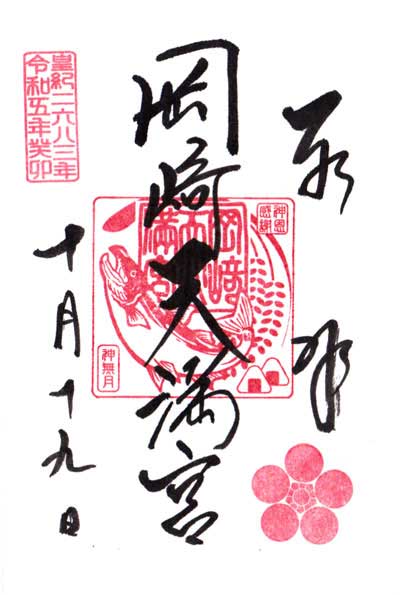 奉拝
岡崎天満宮
十月十九日
皇紀二六八三年
令和五年癸卯
神恩
感謝
岡崎
天
満宮
神無月